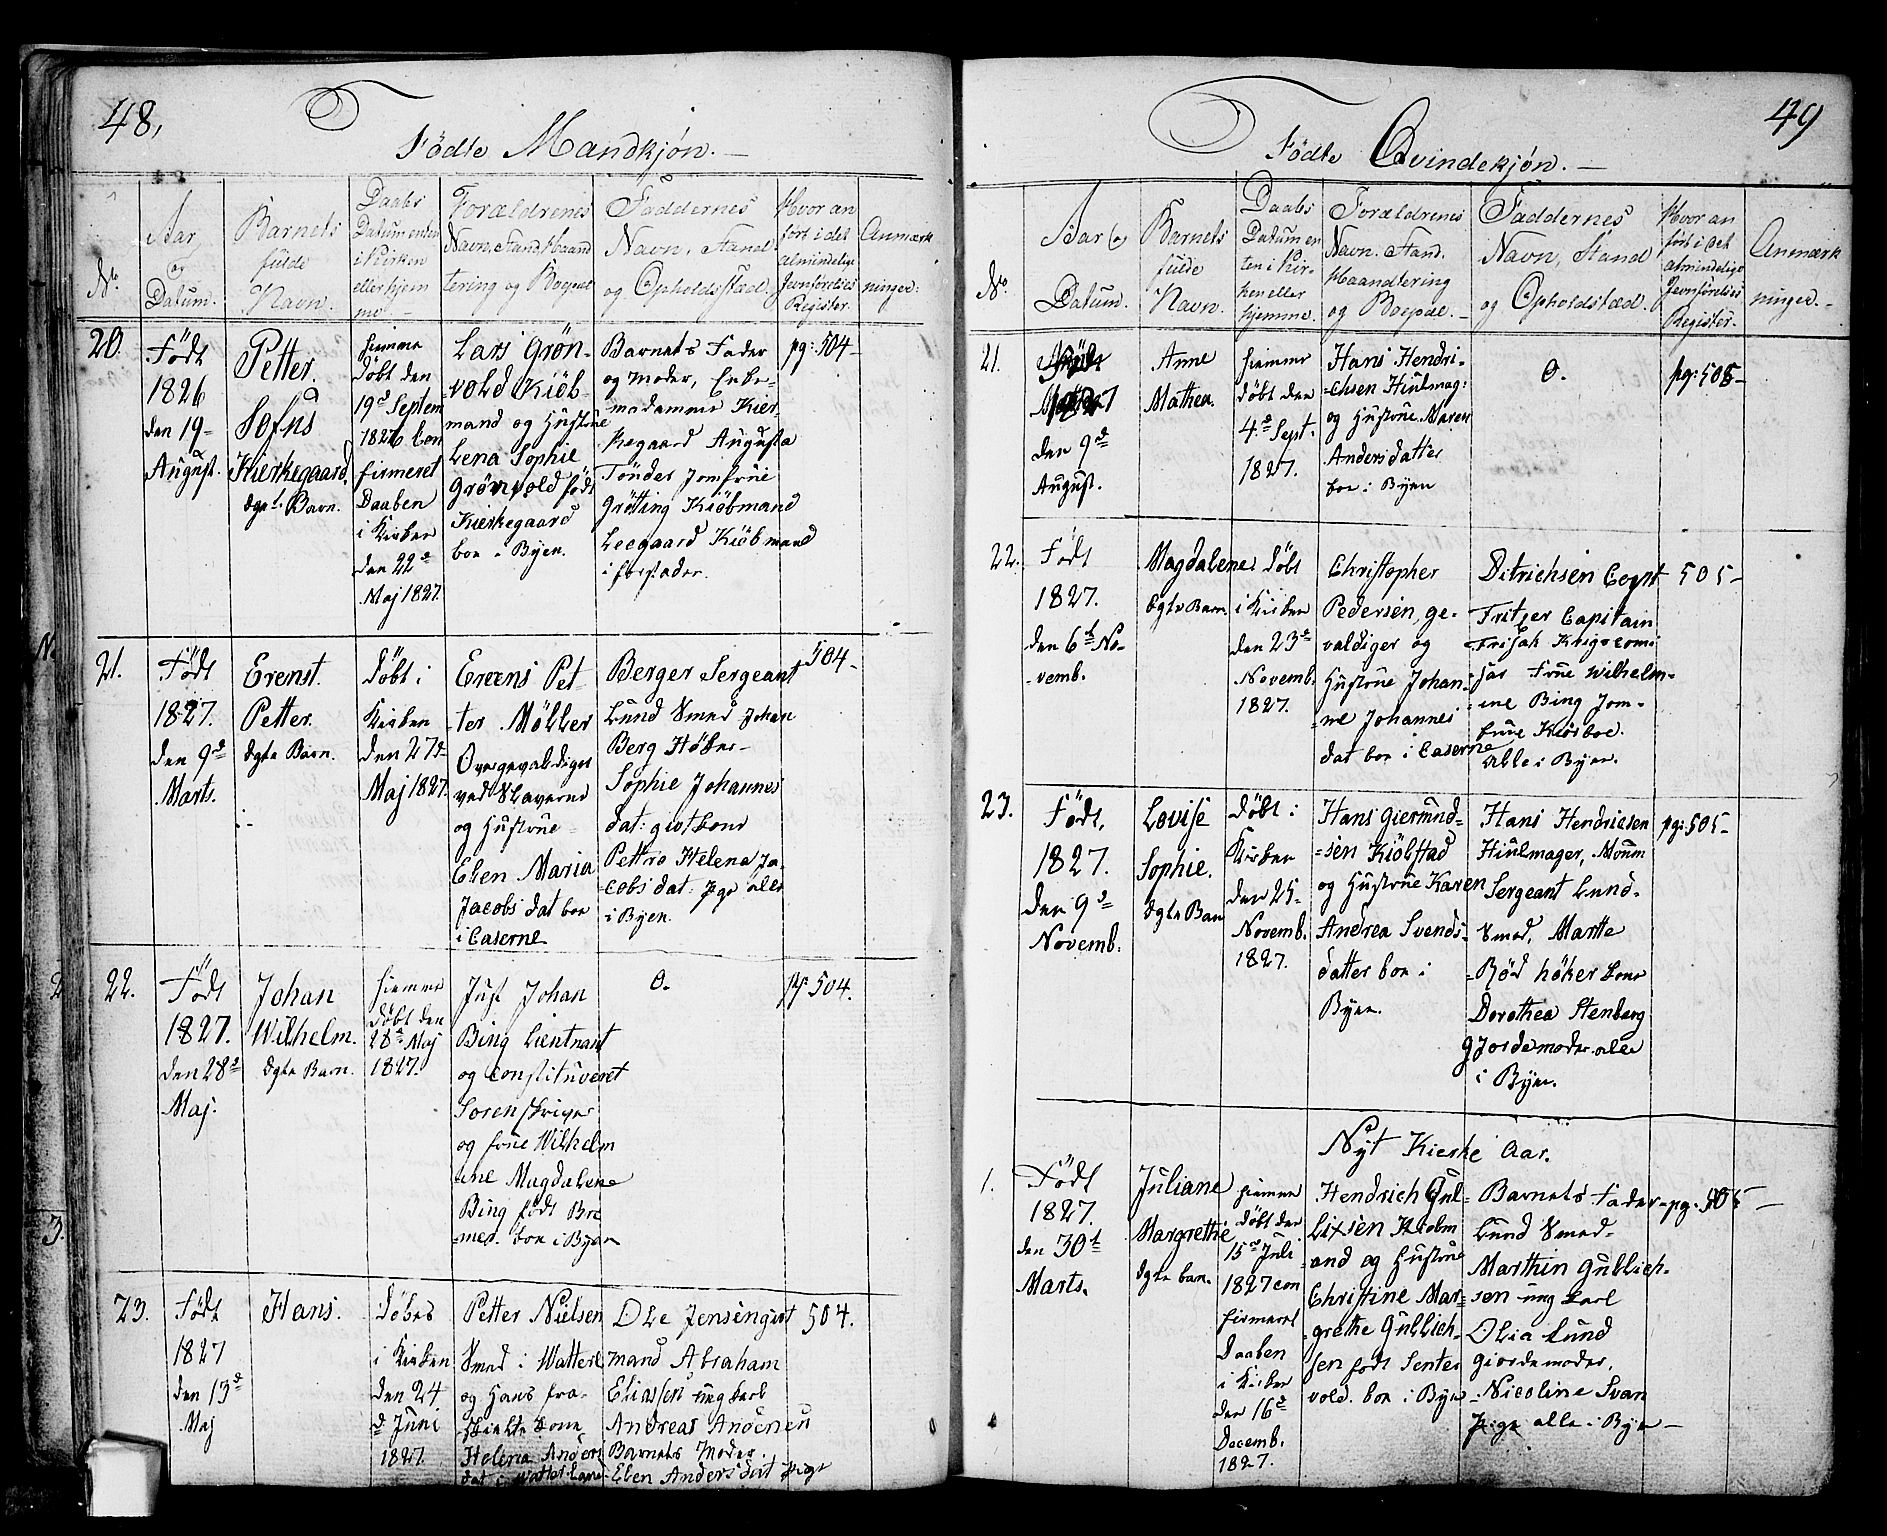 48,
Fødte Mandkjøn.
No.
Aar og Datum.
Barnets fulde Navn.
Daabs Datum enten i Kirken eller hjemme
Forældrenes Navn, Stand, Haandtering og Boepæl
Faddernes Navn, Stand og Opholdsstæd.
Hvor anført i det almindelige Jevnførelses Register.
Anmærkninger.
20.
Født
1826
den 19
August.
Petter
Sofus
Kierkegaard.
ægte Barn.
hiemme
døbt den
19d Septem
1826 Con
firmeret
Daaben
i Kirken
den 22d
Maj 1827.
Lars Grøn-
vold Kiöb
mand og Hustrue
Lena Sophie
Grønvold født
Kierkegaard
boe i Byen.
Barnets Fader
og Moder, Enke-
madamme Kier-
kegaard Augusta
Tønder Jomfrue
Grøtting Kiöbmand
Leegaard Kiöbmand
pg: 504-
21.
Født
1827.
den 9d
Marts.
Erenst.
Petter.
ægte Barn.
døbt i
Kirken
den 27d
Maj 1827.
Erens Pet-
ter Möller
Overgevaldiger
ved Slaverne
og Hustrue
Elen Maria
Jacobs dat boe
i Caserne
Berger Sergeant
Lund Smed Johan
Berg Höker-
Sophie Johannes
dat: gift kone
Pettro Helena Ja-
cobs dat: Pige alle
i Byen.
504-
22.
Født
1827.
den 28d
Maj.
Johan
Wilhelm.
ægte Barn.
hiemme
døbt den
28d Maj
1827.
Just Johan
Bing Lieutnant
og constitueret
Sorenskriver
og frue Wilhelm
ine Magdalene
Bing født Bre
mer. boe i Byen
0.
pg 504.
23.
Født
1827
den 13d
Maj
Hans.
døbes
i Kirken
den 24
d Juni
1827.
Petter Nielsen
Smed i Watterl
og Hans fra-
skielte Kone
Helena Anders
dat i Watterland
Ole Jensen gift
mand Abraham
Eliassen ung karl
Andreas Andenen
Barnets Moder.
Elen Anders dat Pige
504.
49
Fødte Qvindekjøn.
No.
Aar og Datum.
Barnets fulde Navn.
Daabs Datum enten i Kirken eller hjemme.
Forældrenes Navn. Stand. Haandtering og Boepæl.
Faddernes Navn, Stand og Opholdstæd.
Hvor anført i det almindelige Jevnførelses Register.
Anmærkninger.
21.
den 9d
August.
Anne
Mathea.
hiemme
døbt den
4d Sept.
1827.
Hans Hendri-
chsen Hiulmag:
og Hustrue Maren
Anders datter
boe i Byen
0.
pg: 505-
22.
Født
1827.
den 6t No-
vemb.
Magdalene
ægte Barn
døbt
i Kirken
den 23d
Novemb.
1827.
Christopher
Pedersen, ge-
valdiger og
Hustrue Johan-
ne Johannes
dat boe i Caserne
Ditrichsen Capt
Fritzer Capitain
Frisak Krigscomi
sar Frue Wilhelm-
ine Bing Jom-
frue Kiörboe.
Alle i Byen.
505-
23.
Født.
1827.
den 9d
Novemb.
Lovise
Sophie.
ægte Barn
døbt i
Kirken
den 25-
Novemb.
1827.
Hans Giermund-
sen Kiölstad
og Hustrue Karen
Andrea Svends-
datter boe i
Byen.
Hans Hendricsen
Hiulmager, Moum
Sergeant Lund-
Smed, Martte
Rød höker kone
Dorothea Stenberg
Gjordemoder alle
i Byen.
pg: 505-
Nyt Kierke Aar.
1.
Født
1827.
den 30t
Marts.
Juliane
Margrethe
ægte barn.
hiemme
døbt den
15d Juli
1827 con
firmeret
Daaben
i Kirken
den 16d
Decemb.
1827.
Hendrich Gul-
lixsen Kiöbm
and og Hustrue
Christine Mar-
grethe Gullich-
sen født Senter
vold. boe i Byen
Barnets Fader
Lund Smed-
Marthin Gullich-
sen ung karl
Olia Lund
Giordemoder.
Nicoline Svan
Pige alle i Byen
pg: 505-